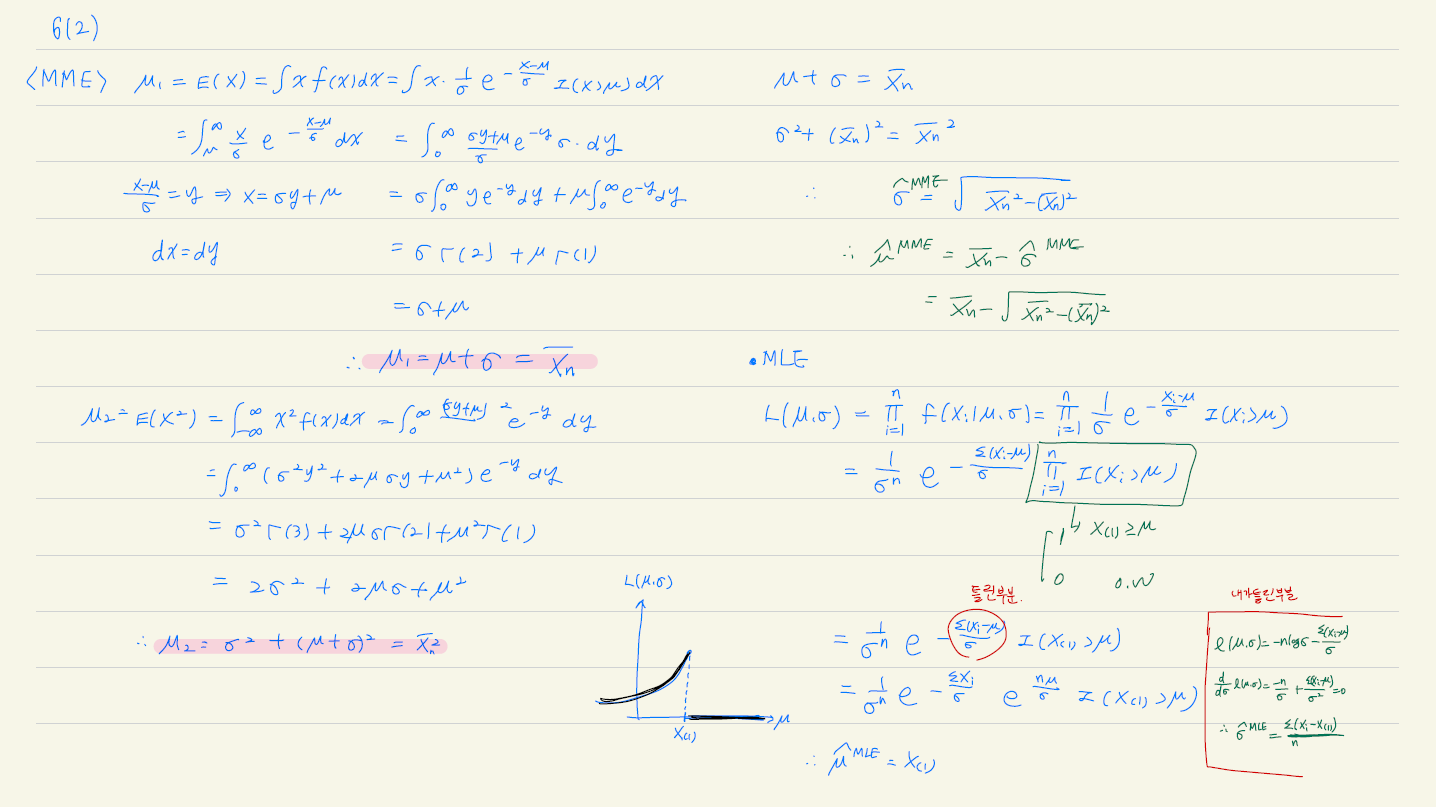 6(2)
<MME> μ₁ = E(X) = ∫x f(x)dx = ∫x·1/σ e^{-(x-μ)/σ} I(x>μ) dx
= ∫_μ^∞ x/σ e^{-(x-μ)/σ} dx = ∫₀^∞ (σy+μ)/σ e^{-y} σ·dy
(x-μ)/σ = y ⇒ x = σy+μ = σ∫₀^∞ ye^{-y}dy + μ∫₀^∞ e^{-y}dy
dx = dy = σΓ(2) + μΓ(1)
= σ+μ
∴ μ₁ = μ+σ = X̄n
μ₂ = E(X²) = ∫_{-∞}^∞ x²f(x)dx = ∫₀^∞ (σy+μ)² e^{-y} dy
= ∫₀^∞ (σ²y²+2μσy+μ²) e^{-y} dy
= σ²Γ(3) + 2μσΓ(2) + μ²Γ(1)
= 2σ² + 2μσ + μ²
∴ μ₂ = σ² + (μ+σ)² = X̄n²
μ + σ = X̄n
σ² + (X̄n)² = X̄n²
∴ σ̂^{MME} = √(X̄n²-(X̄n)²)
∴ μ̂^{MME} = X̄n - σ̂^{MME}
= X̄n - √(X̄n²-(X̄n)²)
• MLE
L(μ,σ) = ∏_{i=1}^n f(xi|μ,σ) = ∏_{i=1}^n 1/σ e^{-(xi-μ)/σ} I(xi>μ)
= 1/σⁿ e^{-Σ(xi-μ)/σ} ∏_{i=1}^n I(xi>μ)
1 ↳ X(1) ≥ μ
0 o.w
L(μ,σ)
X(1)
μ
틀린부분.
= 1/σⁿ e^{-Σ(xi-μ)/σ} I(X(1)>μ)
= 1/σⁿ e^{-Σxi/σ} e^{nμ/σ} I(X(1)>μ)
∴ μ̂^{MLE} = X(1)
내가틀린부분
ℓ(μ,σ) = -nlogσ - Σ(xi-μ)/σ
d/dσ ℓ(μ,σ) = -n/σ + Σ(xi-μ)/σ² = 0
∴ σ̂^{MLE} = Σ(xi-X(1))/n